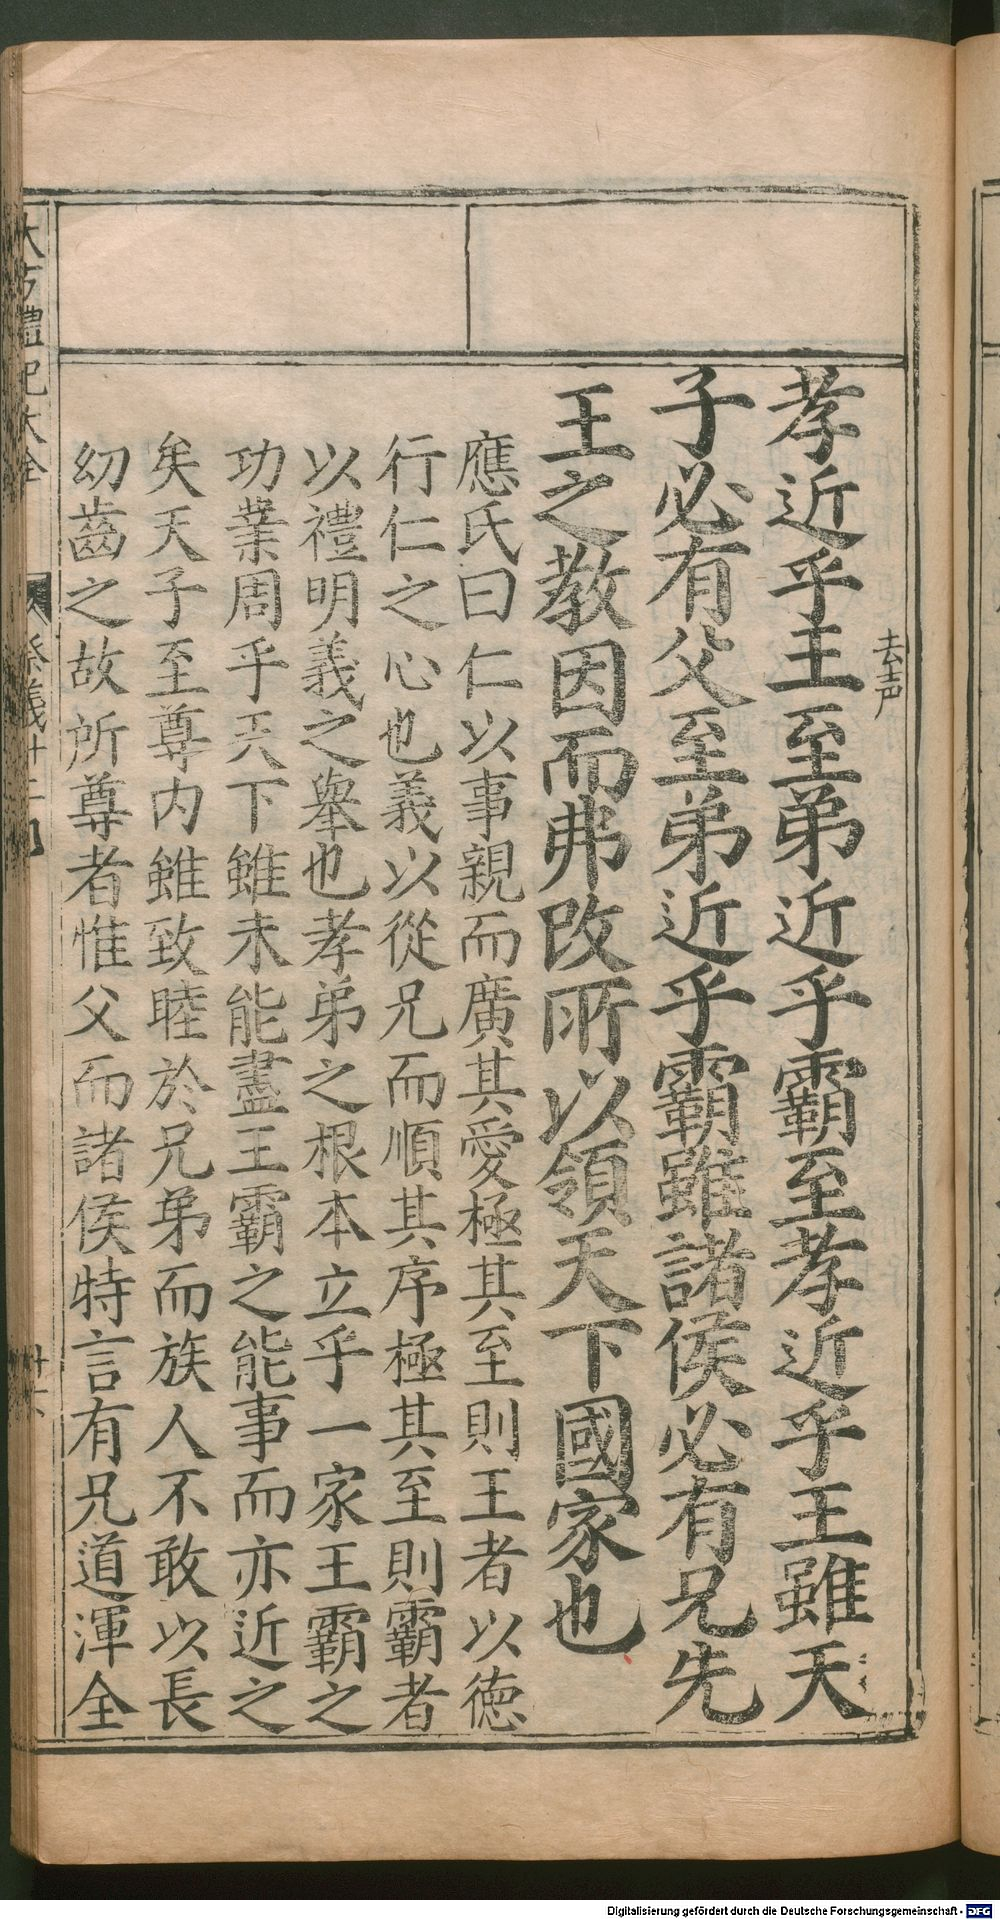 去声
孝近乎王至弟近乎霸至孝近乎王雖天
子必有父至弟近乎霸雖諸侯必有兄先
王之教因而弗改所以領天下國家也
應氏曰仁以事親而廣其愛極其至則王者以德
行仁之心也義以從兄而順其序極其至則霸者
以禮明義之舉也孝弟之根本立乎一家王霸之
功業周乎天下雖未能盡王霸之能事而亦近之
矣天子至尊内雖致睦於兄弟而族人不敢以長
幼齒之故所尊者惟父而諸侯特言有兄道渾全
大方禮記大全
祭義廿四
Digitalisierung gefördert durch die Deutsche Forschungsgemeinschaft - DFG